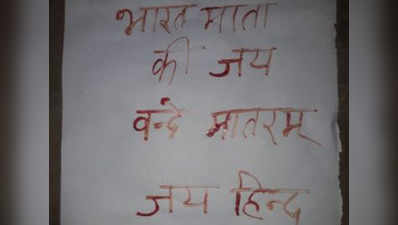 भारत माता
की जय
वन्दे मातरम्
जय हिन्द